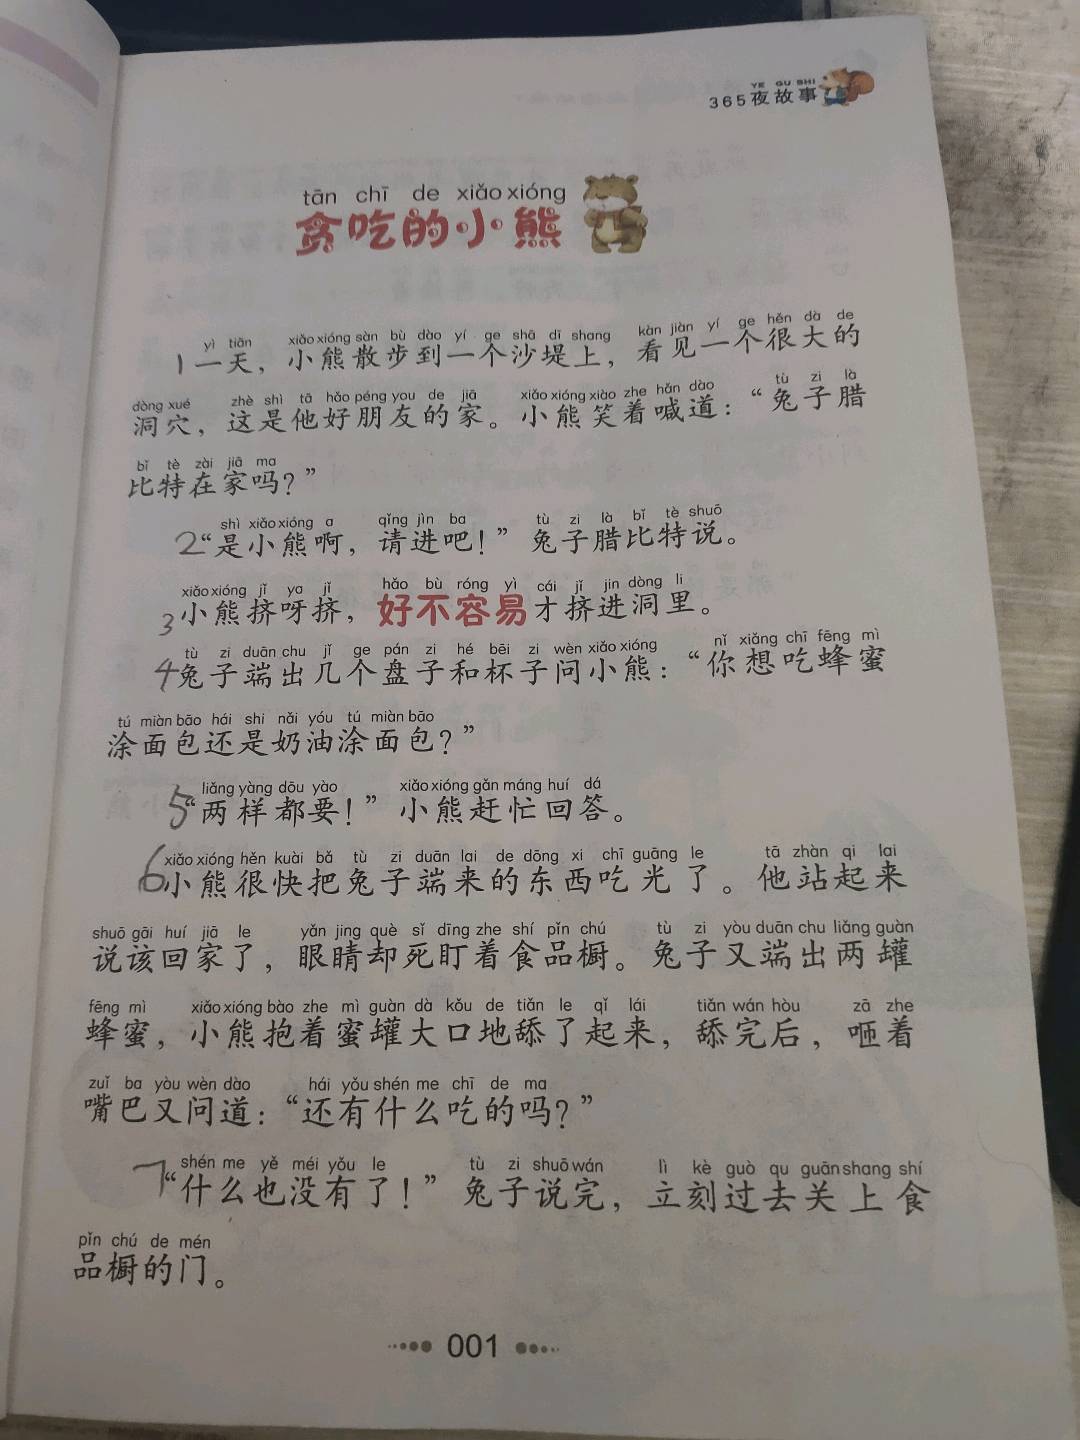 YE GU SHI
365夜故事
tān chī de xiǎo xióng
贪吃的小熊
yì tiān xiǎo xióng sàn bù dào yí ge shā dī shang kàn jiàn yí ge hěn dà de
1 一天，小熊散步到一个沙堤上，看见一个很大的
dòng xué zhè shì tā hǎo péng you de jiā xiǎo xióng xiào zhe hǎn dào tù zi là
洞穴，这是他好朋友的家。小熊笑着喊道：“兔子腊
bǐ tè zài jiā ma
比特在家吗？”
shì xiǎo xióng a qǐng jìn ba tù zi là bǐ tè shuō
2 “是小熊啊，请进吧！” 兔子腊比特说。
xiǎo xióng jǐ ya jǐ hǎo bù róng yì cái jǐ jìn dòng li
3 小熊挤呀挤，好不容易才挤进洞里。
tù zi duān chu jǐ ge pán zi hé bēi zi wèn xiǎo xióng nǐ xiǎng chī fēng mì
4 兔子端出几个盘子和杯子问小熊：“你想吃蜂蜜
tú miàn bāo hái shi nǎi yóu tú miàn bāo
涂面包还是奶油涂面包？”
liǎng yàng dōu yào xiǎo xióng gǎn máng huí dá
5 “两样都要！” 小熊赶忙回答。
xiǎo xióng hěn kuài bǎ tù zi duān lai de dōng xi chī guāng le tā zhàn qi lai
6 小熊很快把兔子端来的东西吃光了。他站起来
shuō gāi huí jiā le yǎn jing què sǐ dīng zhe shí pǐn chú tù zi yòu duān chu liǎng guàn
说该回家了，眼睛却死盯着食品橱。兔子又端出两罐
fēng mì xiǎo xióng bào zhe mì guàn dà kǒu de tiǎn le qǐ lái tiǎn wán hòu zā zhe
蜂蜜，小熊抱着蜜罐大口地舔了起来，舔完后，咂着
zuǐ ba yòu wèn dào hái yǒu shén me chī de ma
嘴巴又问道：“还有什么吃的吗？”
shén me yě méi yǒu le tù zi shuō wán lì kè guò qu guān shang shí
7 “什么也没有了！” 兔子说完，立刻过去关上食
pǐn chú de mén
品橱的门。
001